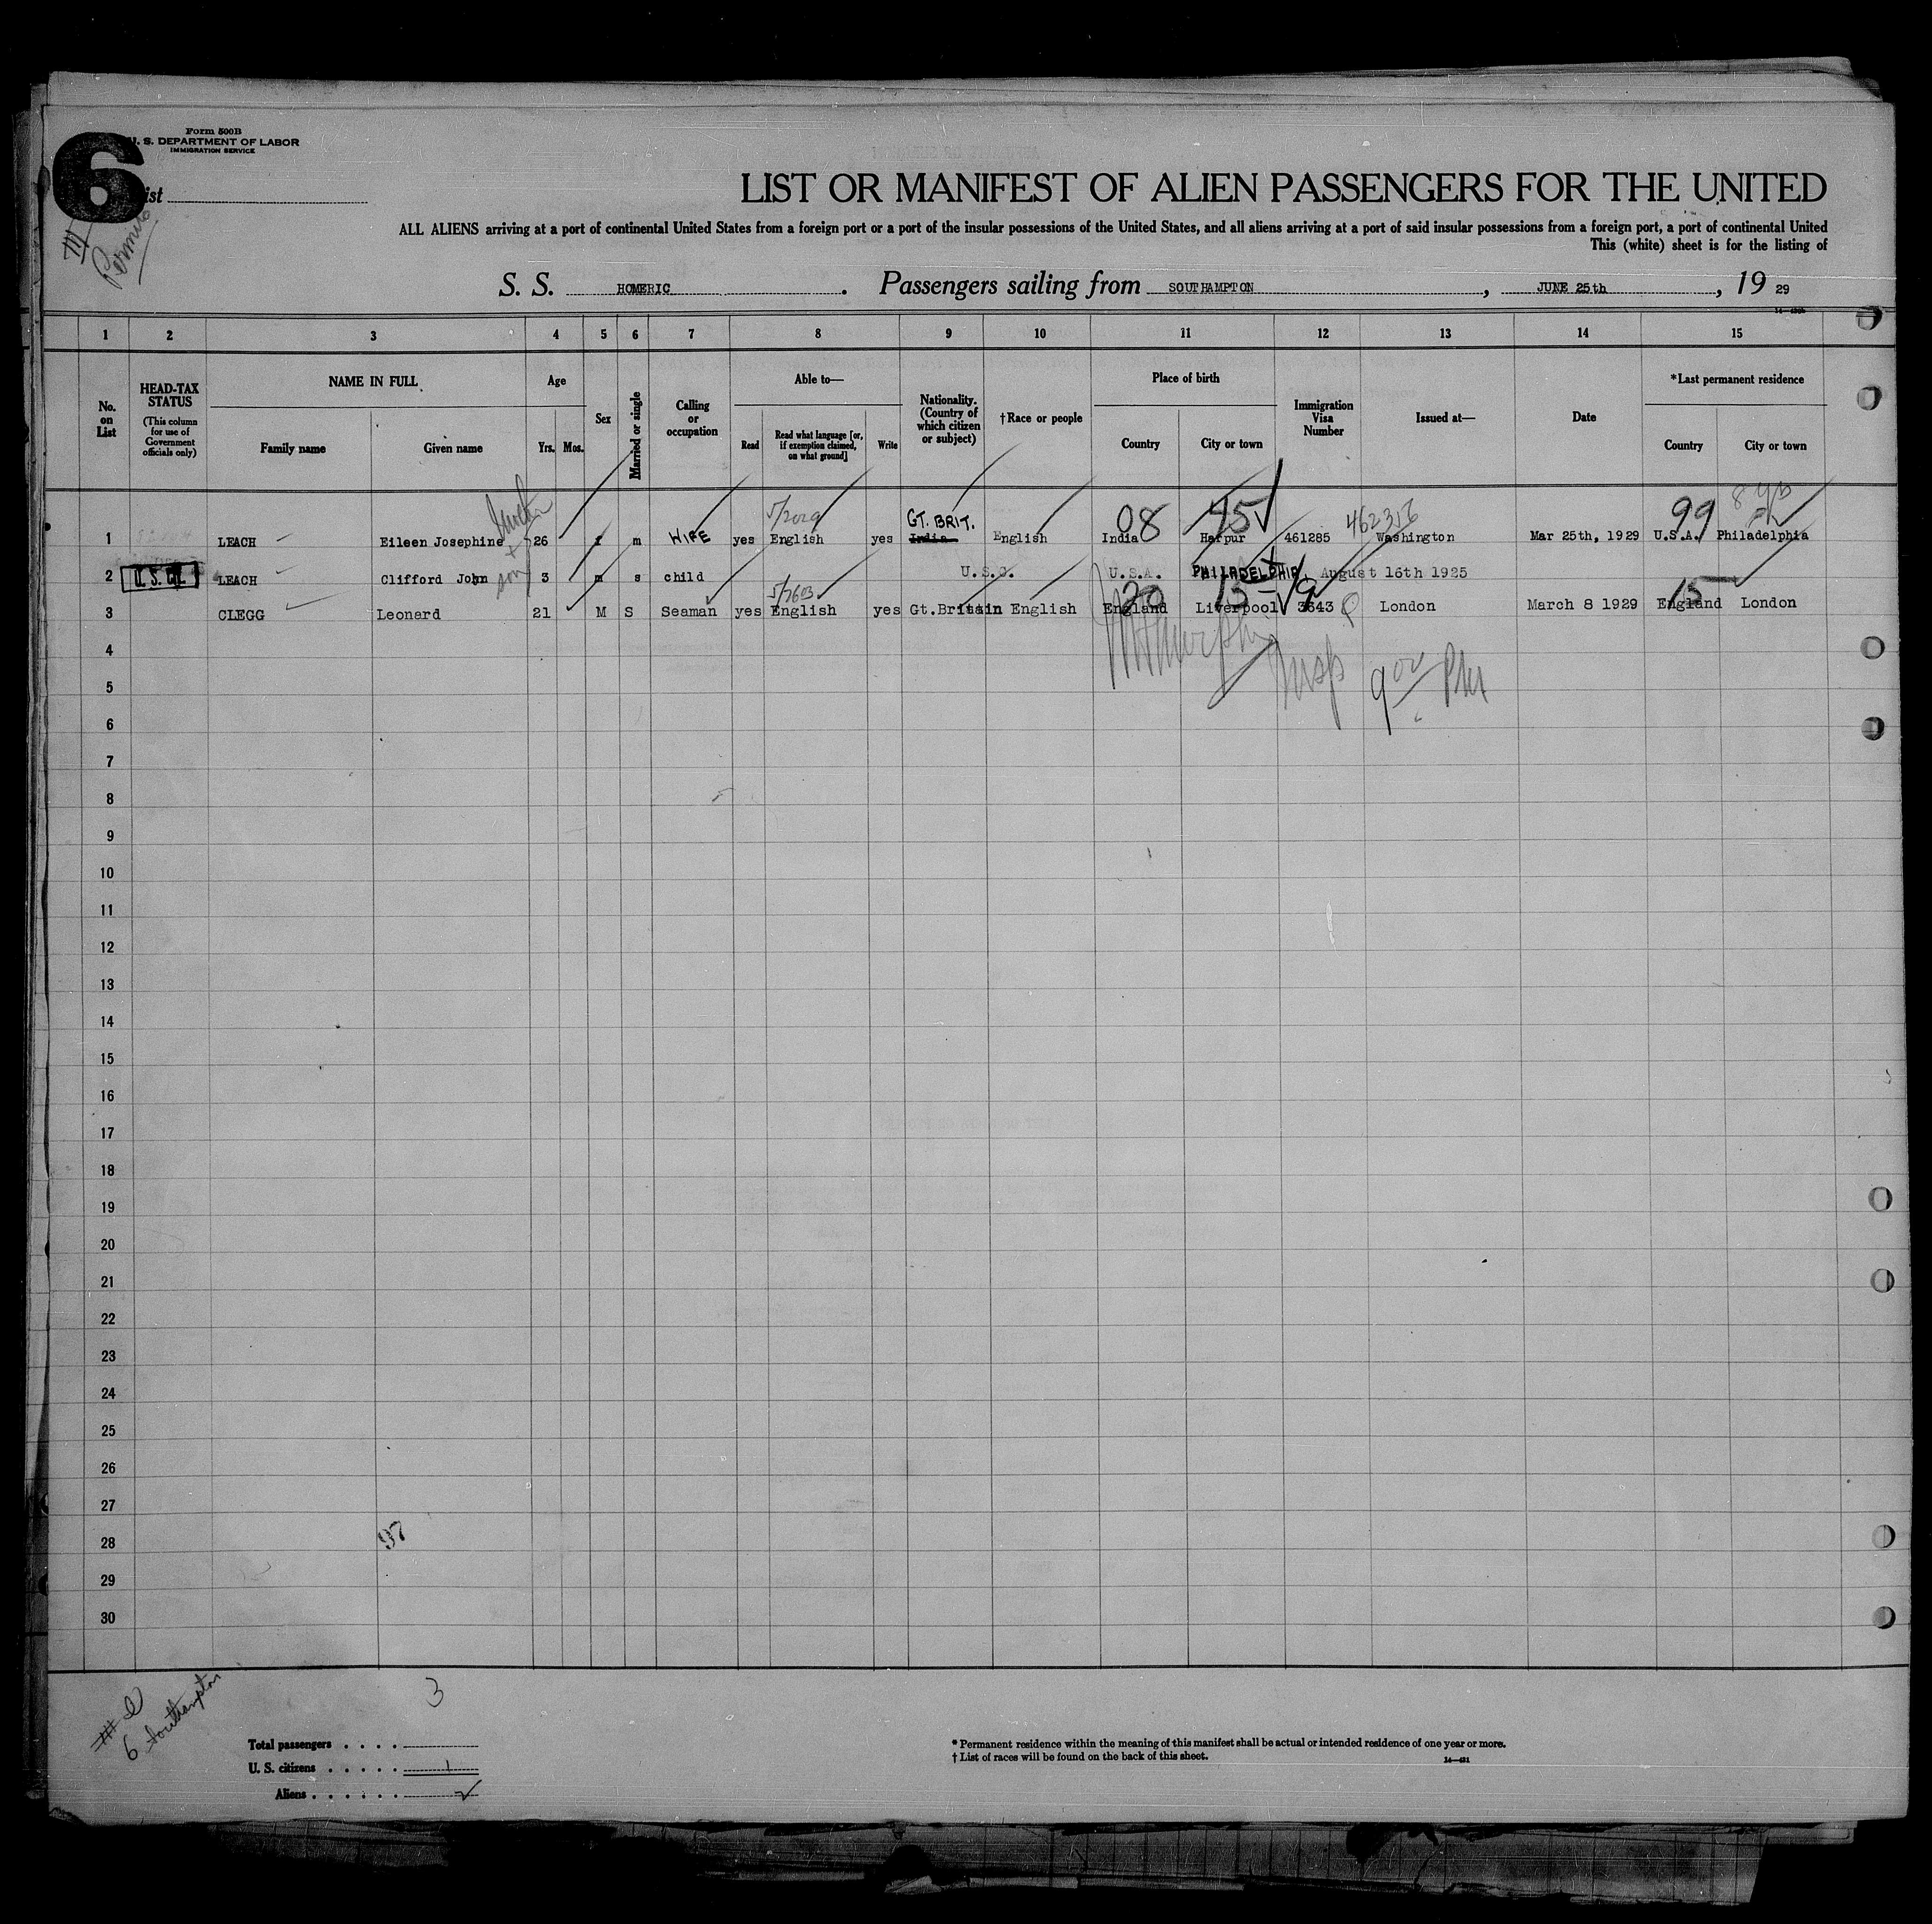 6
Form 500B
U. S. DEPARTMENT OF LABOR
IMMIGRATION SERVICE
List
Permits
LIST OR MANIFEST OF ALIEN PASSENGERS FOR THE UNITED
ALL ALIENS arriving at a port of continental United States from a foreign port or a port of the insular possessions of the United States, and all aliens arriving at a port of said insular possessions from a foreign port, a port of continental United
This (white) sheet is for the listing of
S. S. HOMERIC . Passengers sailing from SOUTHAMPTON , JUNE 25th , 19 29
1 2 3 4 5 6 7 8 9 10 11 12 13 14 15
No. on List
HEAD-TAX STATUS (This column for use of Government officials only)
NAME IN FULL
Family name Given name
Age
Yrs. Mos.
Sex
Married or single
Calling or occupation
Able to—
Read Read what language [or, if exemption claimed, on what ground] Write
Nationality. (Country of which citizen or subject)
†Race or people
Place of birth
Country City or town
Immigration Visa Number
Issued at—
Date
*Last permanent residence
Country City or town
5/2029 GT. BRIT. 08 45 462356 99
1 LEACH Eileen Josephine 26 f m WIFE yes English yes India English India Hafpur 461285 Washington Mar 25th, 1929 U.S.A. Philadelphia
son
2 U. S. CIT. LEACH Clifford John 3 m s child U.S.C. U.S.A. PHILADELPHIA August 16th 1925
5/7603 20 15 9 15
3 CLEGG Leonard 21 M S Seaman yes English yes Gt.Britain English England Liverpool 3343 London March 8 1929 England London
Insp 9 00 PM
4
5
6
7
8
9
10
11
12
13
14
15
16
17
18
19
20
21
22
23
24
25
26
27
28 97
29
30
6 Southampton
3
Total passengers . . . .
U. S. citizens . . . . . 1
Aliens . . . . . . 2
* Permanent residence within the meaning of this manifest shall be actual or intended residence of one year or more.
† List of races will be found on the back of this sheet. 14—431